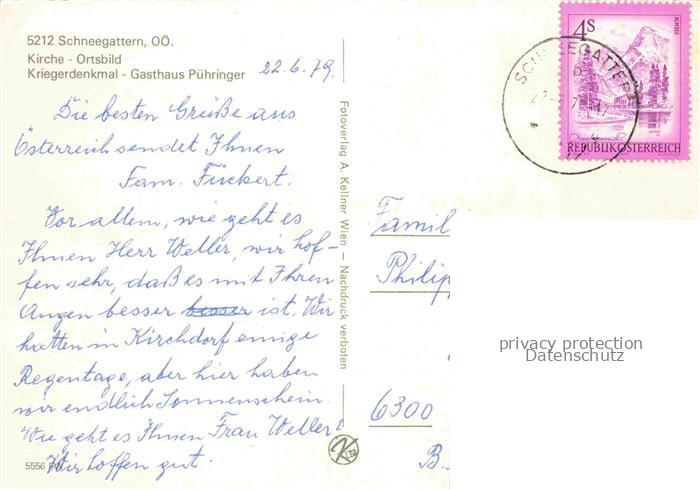 5212 Schneegattern, OÖ.
Kirche - Ortsbild
Kriegerdenkmal - Gasthaus Pühringer
22.6.79.
Die besten Grüße aus
Österreich sendet Ihnen
Fam. Fückert.
Vor allem, wie geht es
Ihnen Herr Weller, wir hof-
fen sehr, daß es mit Ihren
Augen besser besser ist. Wir
hatten in Kirchdorf einige
Regentage, aber hier haben
wir endlich Sonnenschein.
Wie geht es Ihnen Frau Weller?
Wir hoffen gut.
5556
Fotoverlag A. Kellner Wien — Nachdruck verboten
4S
ALMSEE
REPUBLIK ÖSTERREICH
SCHNEEGATTERN
Famil
Philip
6300
B.
privacy protection
Datenschutz